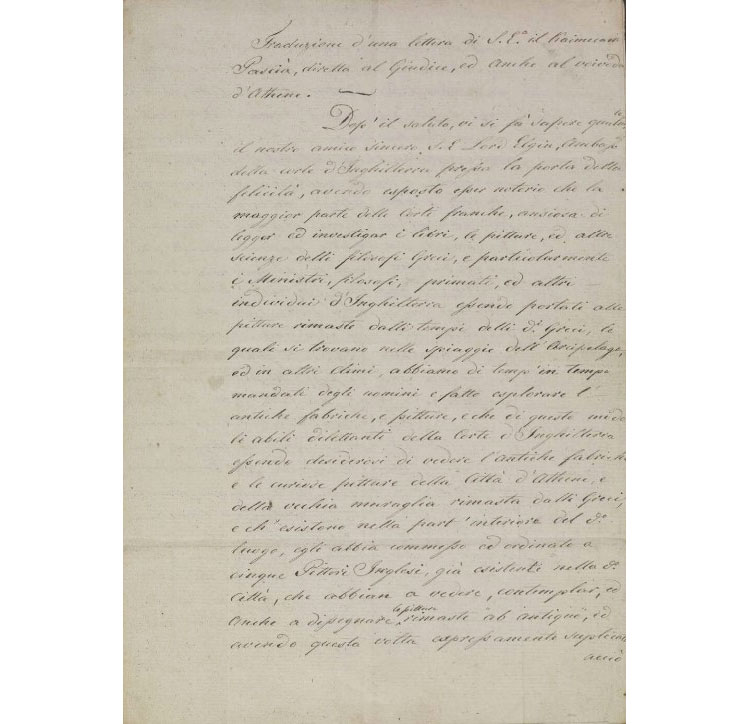 Traduzione d'una lettera di S. E.ª il Caimacam
Pascià, diretta al Giudice, ed anche al Voivoda
d'Athene. —
Dop' il saluto, vi si fà sapere qualm.te
il nostro amico sincero S. E. Lord Elgin, Ambasr
della corte d'Inghilterra presso la porta della
felicità, avendo esposto esser notorio che la
maggior parte delle Corti franche, ansiosa di
legger ed investigar i libri, le pitture, ed altre
scienze delli filosofi Greci, e particolarmente
i Ministri, filosofi, primati, ed altri
individui d'Inghilterra essendo portati alle
pitture rimaste dalli tempi delli d.i Greci, le
quali si trovano nelle spiaggie dell'Arcipelago,
ed in altri climi, abbiano di temp' in tempo
mandati degli uomini e fatto esplorare l'
antiche fabriche, e pitture, e che di questo modo
li abili dilettanti della Corte d'Inghilterra
essendo desiderosi di vedere l'antiche fabriche
e le curiose pitture della Città d'Athene, e
della vechia muraglia rimasta dalli Greci,
e ch' esistono nella part' interiore del d.o
luogo, egli abbia commesso ed ordinato a
cinque Pittori Inglesi, già esistenti nella d.a
Città, che abbian a vedere, contemplar, ed
anche a disegnare le pitture rimaste ab antiquo, ed
avendo questa volta espressamente supplicato
acciò